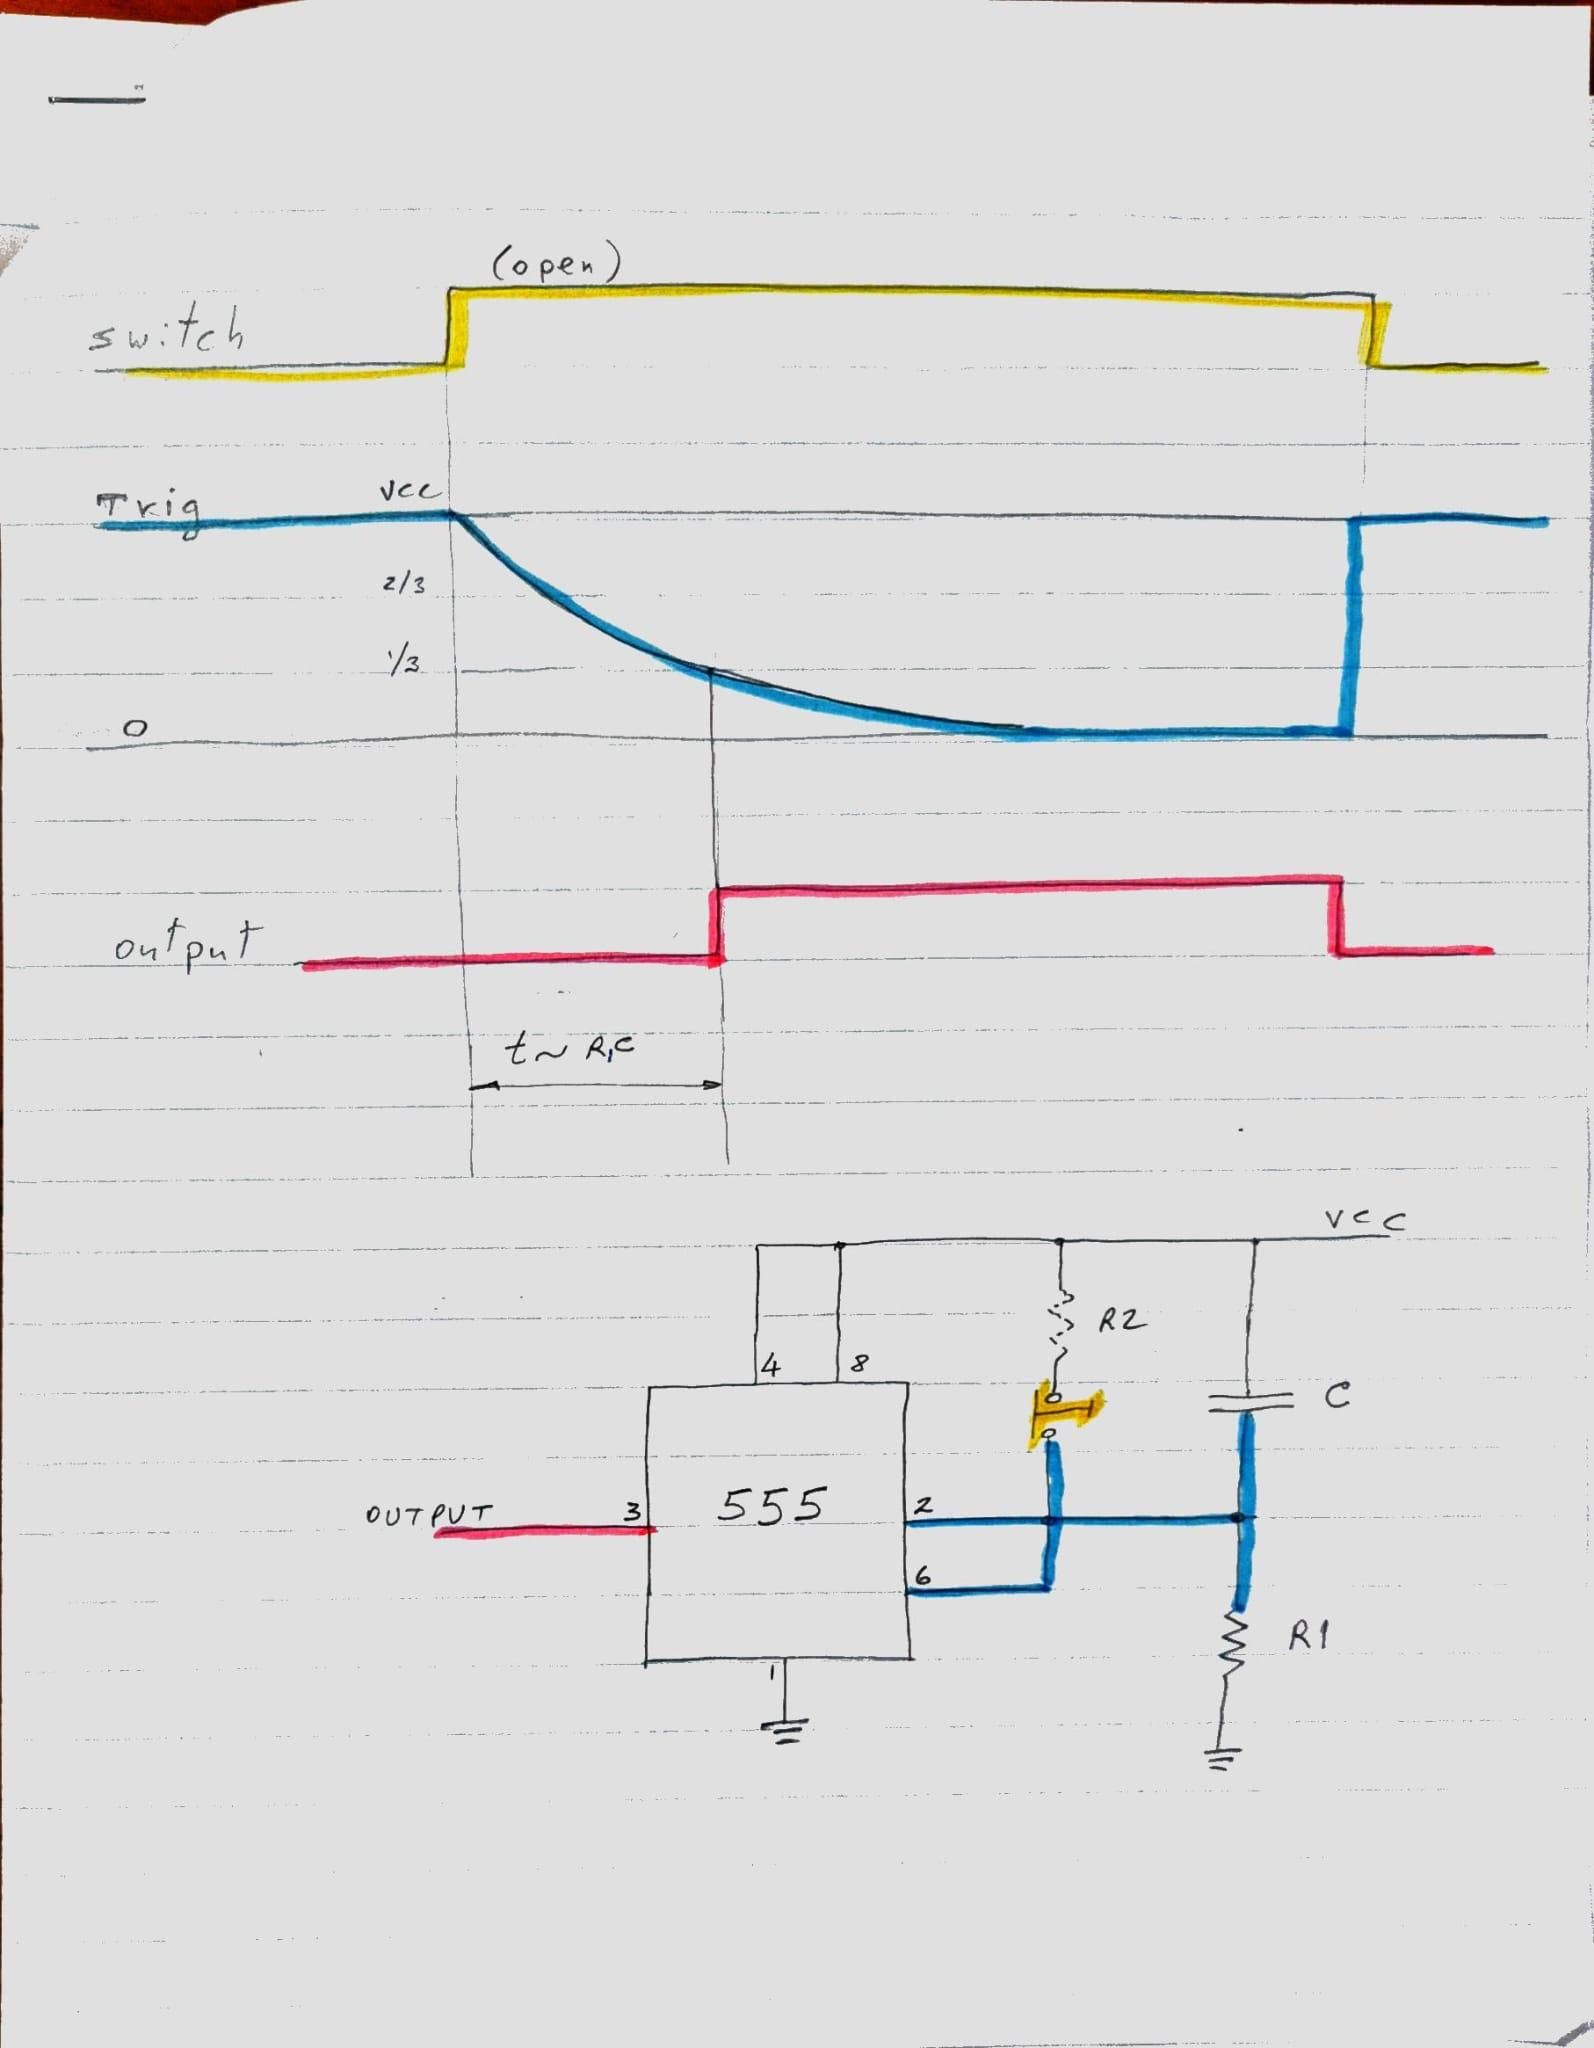 (open)
switch
Trig VCC
2/3
1/3
0
output
t ~ R1C
VCC
R2
4 8
C
OUTPUT 3 555 2
6
R1
1